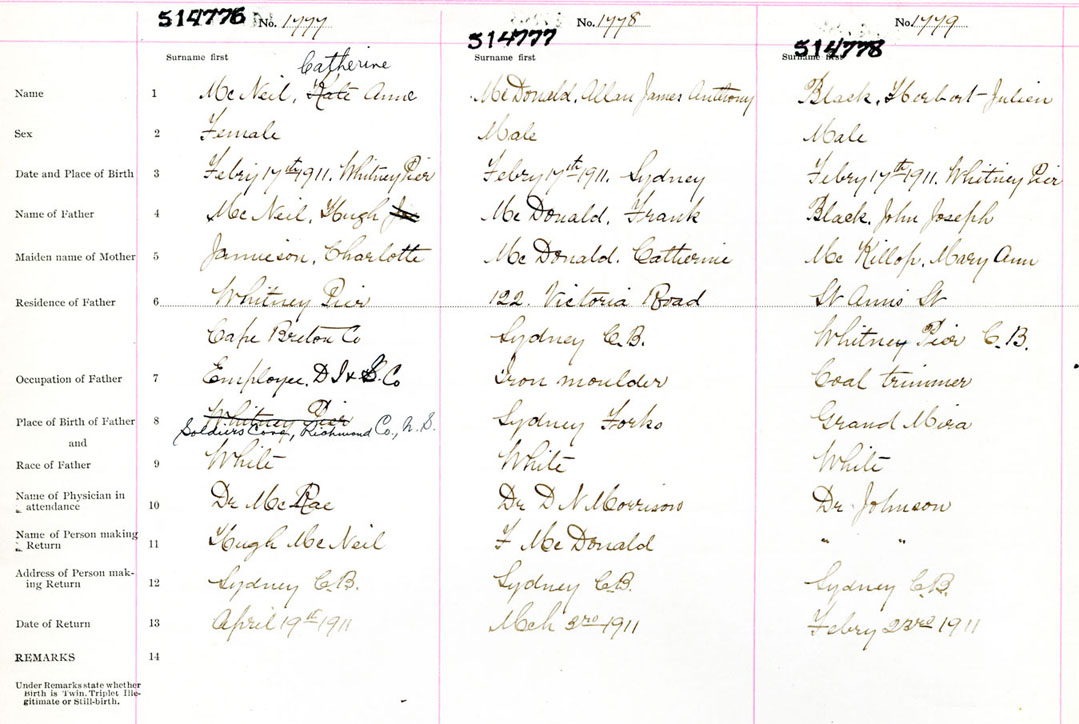 514776 No. 1777 514777 No. 1778 514778 No. 1779
Surname first Surname first Surname first
Catherine
Name 1 McNeil, Kate Anne McDonald, Allan James Anthony Black, Herbert Julien
Sex 2 Female Male Male
Date and Place of Birth 3 Febry 17th 1911. Whitney Pier Febry 17th 1911. Sydney Febry 17th 1911. Whitney Pier
Name of Father 4 McNeil, Hugh McDonald, Frank Black, John Joseph
Maiden name of Mother 5 Jamieson, Charlotte McDonald, Catherine McKillop, Mary Ann
Residence of Father 6 Whitney Pier 122 Victoria Road St Anns St
Cape Breton Co Sydney C.B. Whitney Pier C.B.
Occupation of Father 7 Employee, D I & S. Co Iron moulder Coal trimmer
Place of Birth of Father 8 Whitney Pier Sydney Forks Grand Mira
Soldiers Cove, Richmond Co., N.S.
and
Race of Father 9 White White White
Name of Physician in
attendance 10 Dr McRae Dr D N Morrison Dr Johnson
Name of Person making
Return 11 Hugh McNeil F McDonald " "
Address of Person mak-
ing Return 12 Sydney C.B. Sydney C.B. Sydney C.B.
Date of Return 13 April 19th 1911 Mch 3rd 1911 Febry 23rd 1911
REMARKS 14
Under Remarks state whether
Birth is Twin, Triplet Ille-
gitimate or Still-birth.